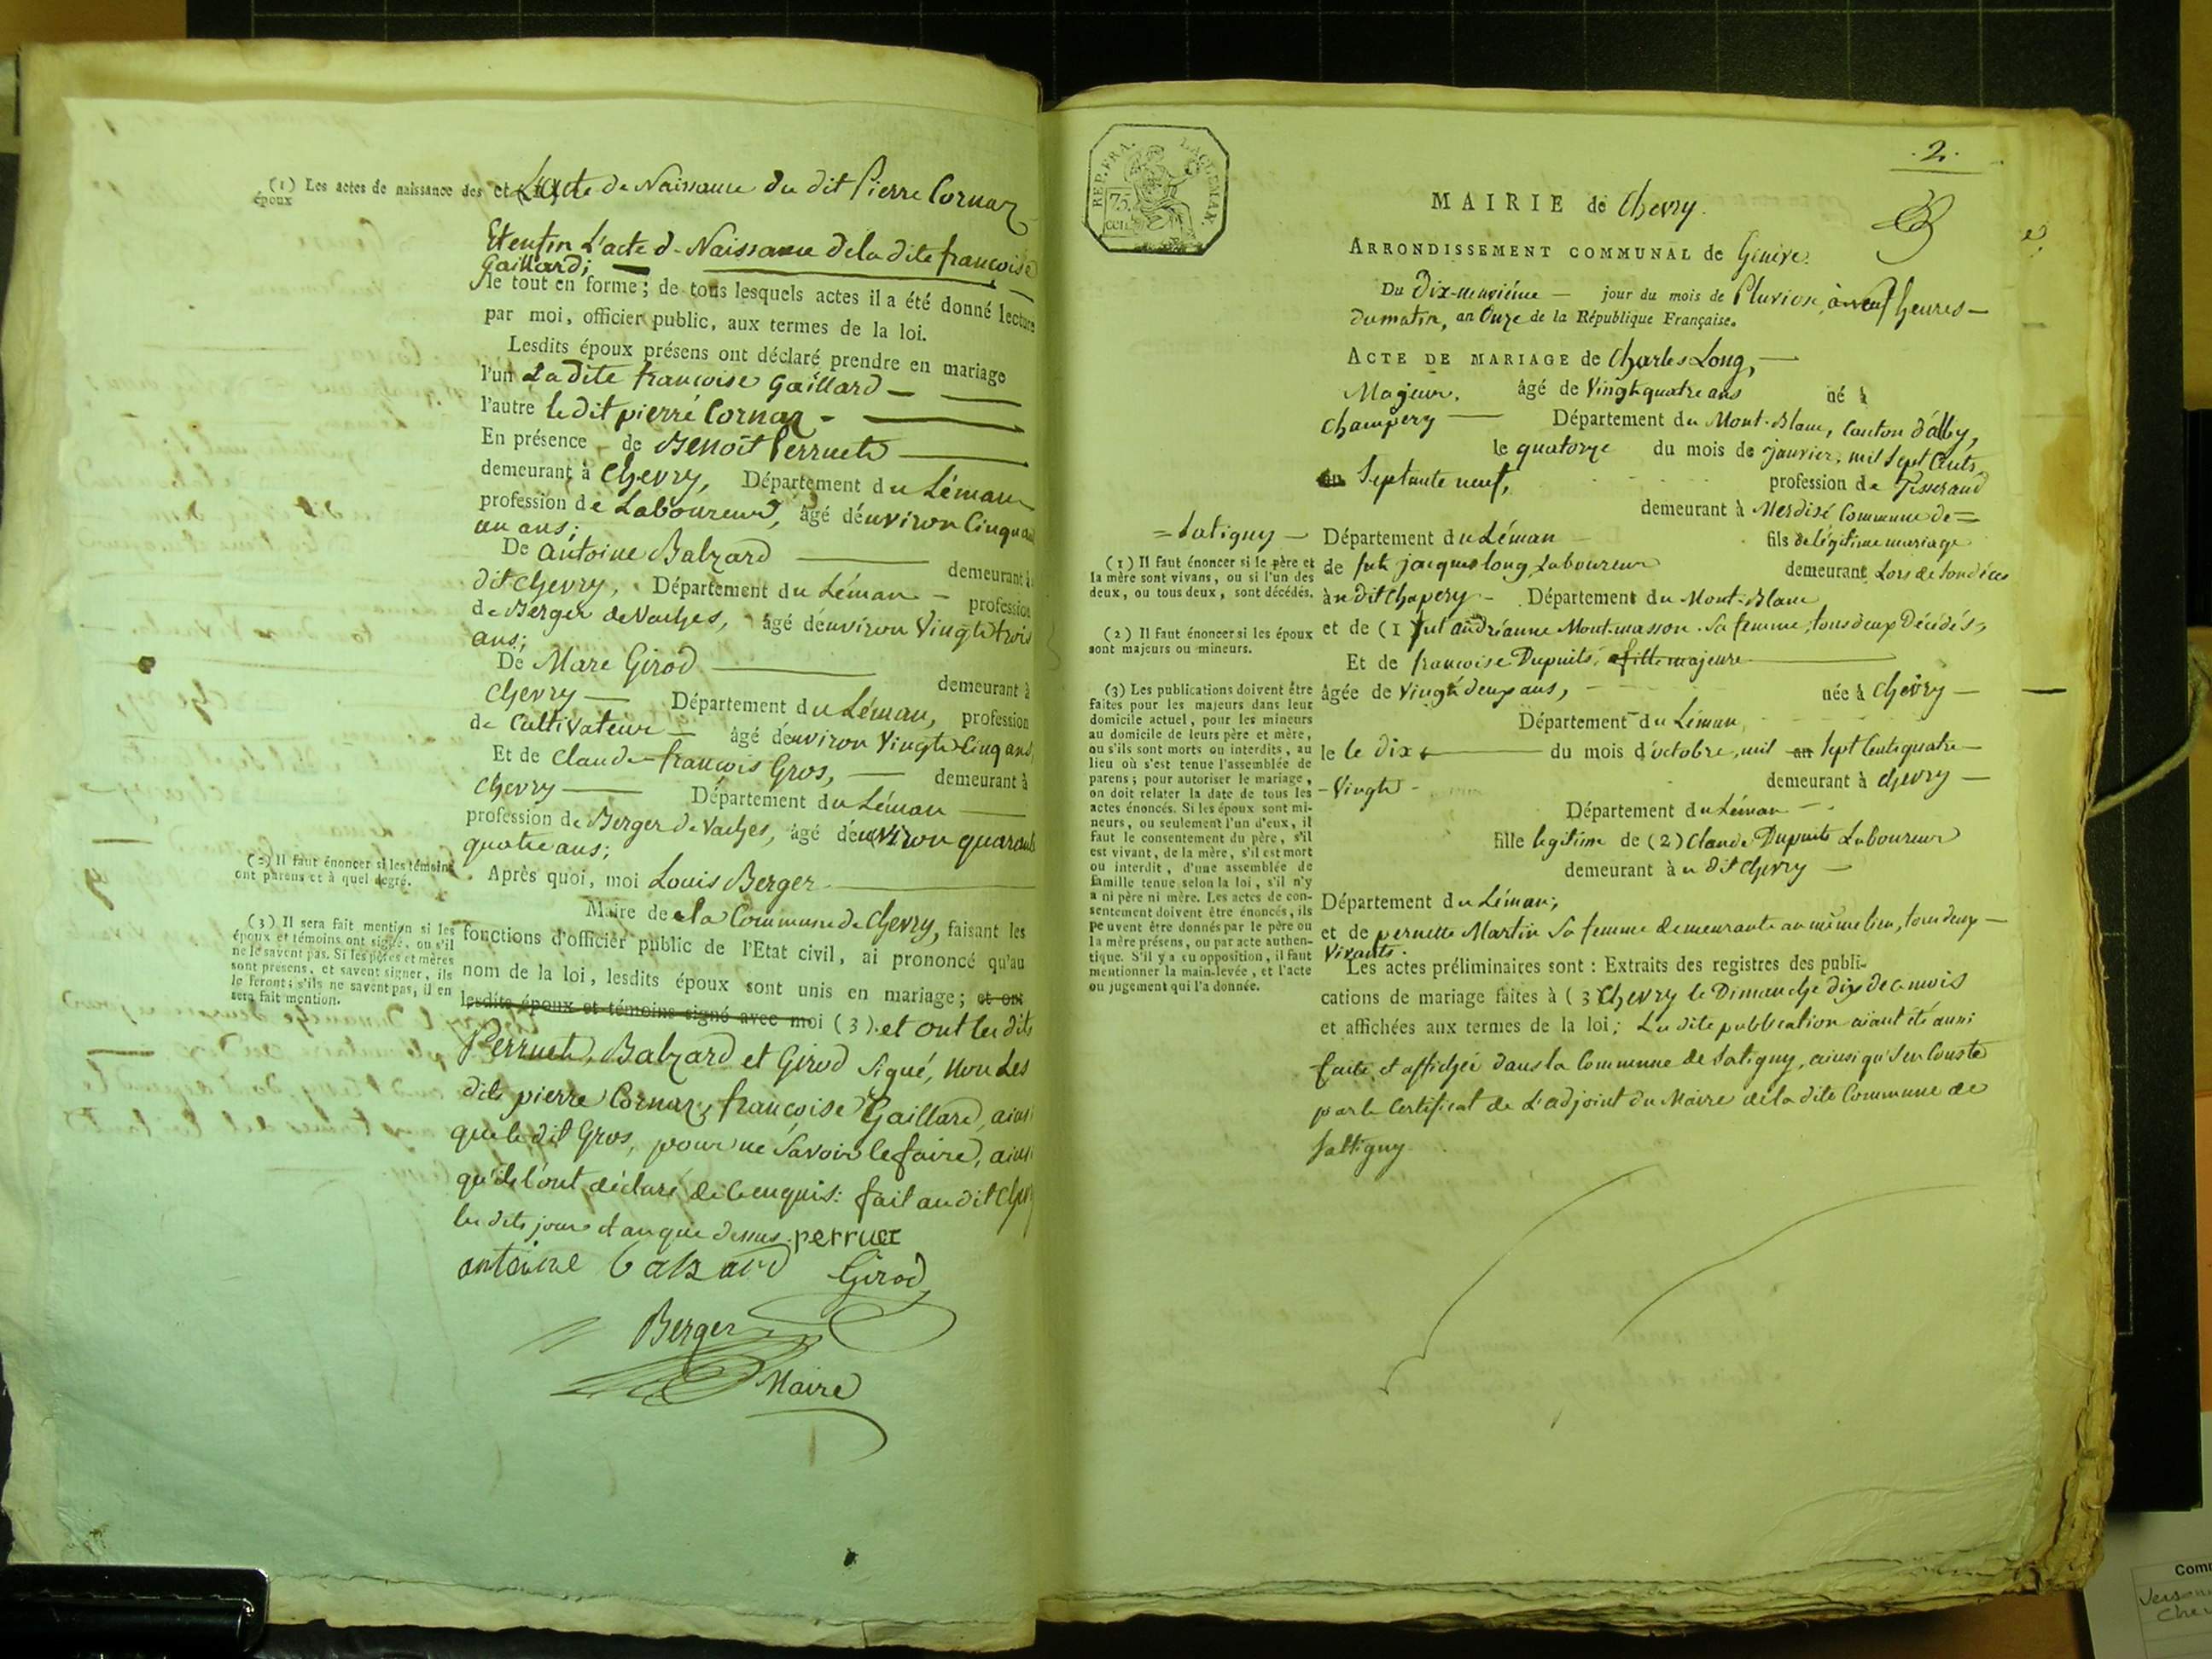 (1) Les actes de naissance des époux
et L'acte de Naissance du dit Pierre Cornaz
Et enfin L'acte de Naissance de la dite francoise
Gaillard;
le tout en forme; de tous lesquels actes il a été donné lecture
par moi, officier public, aux termes de la loi.
Lesdits époux présens ont déclaré prendre en mariage
l'un La dite francoise Gaillard
l'autre le dit pierre Cornaz
En présence de Benoît Perruet
demeurant à Chevry, Département du Léman
profession de Laboureur, âgé d'environ Cinqua
un ans;
De Antoine Balzard demeurant à
dit Chevry, Département du Léman profession
de Berger de Vaches, âgé d'environ Vingt trois
ans;
De Marc Girod demeurant à
Chevry Département du Léman, profession
de Cultivateur âgé d'environ Vingt Cinq ans,
Et de Claude francois Gros, demeurant à
Chevry Département du Léman
profession de Berger de Vaches, âgé d'environ quarante
quatre ans;
(2) Il faut énoncer si les témoins
ont parens et à quel degré.
Après quoi, moi Louis Berger
Maire de la Commune de Chevry, faisant les
(3) Il sera fait mention si les
époux et témoins ont signé, ou s'il
ne le savent pas. Si les pères et mères
sont présens, et savent signer, ils
le feront; s'ils ne savent pas, il en
sera fait mention.
fonctions d'officier public de l'Etat civil, ai prononcé qu'au
nom de la loi, lesdits époux sont unis en mariage; et ont
lesdits époux et témoins signé avec moi (3). et ont les dits
Perruet, Balzard et Girod Signé, Non Les
dits pierre Cornaz, françoise Gaillard, ainsi
que le dit Gros, pour ne Savoir le faire, ainsi
qu'ils l'ont déclaré de ce enquis: fait au dit
les dits jour et an que dessus. perruet
antoine balzard Girod
Berger
Maire
REP. FRA.
75.
cen.
.2.
MAIRIE de Chevry.
ARRONDISSEMENT COMMUNAL de Genève.
Du Dix-neuvième jour du mois de Pluviose, à neuf heures
du matin, an Onze de la République Française.
ACTE DE MARIAGE de Charles Long,
Majeur, âgé de Vingt quatre ans né à
Champery Département du Mont-Blanc, Canton d'alby,
le quatorze du mois de janvier, mil Sept Cents
an Septante neuf, profession de Tisserand
demeurant à Merdisé Commune de =
= Satigny Département du Léman fils de légitime mariage
(1) Il faut énoncer si le père et
la mère sont vivans, ou si l'un des
deux, ou tous deux, sont décédés.
de fut jacques long Laboureur demeurant Lors de Son déces
à u dit Chapery Département du Mont-Blanc
(2) Il faut énoncer si les époux
sont majeurs ou mineurs.
et de (1) fut andréanne Montmasson Sa femme, tous deux Décédés,
Et de francoise Dupuits, fille majeure
(3) Les publications doivent être
faites pour les majeurs dans leur
domicile actuel, pour les mineurs
au domicile de leurs père et mère,
ou s'ils sont morts ou interdits, au
lieu où s'est tenue l'assemblée de
parens; pour autoriser le mariage,
on doit relater la date de tous les
actes énoncés. Si les époux sont mi-
neurs, ou seulement l'un d'eux, il
faut le consentement du père, s'il
est vivant, de la mère, s'il est mort
ou interdit, d'une assemblée de
famille tenue selon la loi, s'il n'y
a ni père ni mère. Les actes de con-
sentement doivent être énoncés, ils
peuvent être donnés par le père ou
la mère présens, ou par acte authen-
tique. S'il y a eu opposition, il faut
mentionner la main-levée, et l'acte
ou jugement qui l'a donnée.
âgée de Vingt deux ans, née à Chevry
Département du Léman
le le dix du mois d'octobre, mil an Sept Cents quatre
- Vingt - demeurant à Chevry
Département du Léman
fille legitime de (2) Claude Dupuits Laboureur
demeurant à u dit Chevry
Département du Léman;
et de pernette Martin Sa femme demeurante au même lieu, tous deux
Vivants.
Les actes préliminaires sont : Extraits des registres des publi-
cations de mariage faites à (3) Chevry le Dimanche dix de ce mois
et affichées aux termes de la loi; La dite publication aiant été aussi
faite et affichée dans la Commune de Satigny, ainsi qu'il en Conste
par le Certificat de L'adjoint du Maire de la dite Commune de
Sattigny
Com